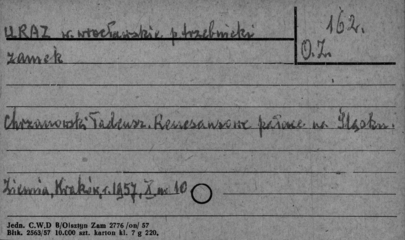 URAZ w. wrocławskie p. trzebnicki
162.
zamek
O.Z.
Chrzanowski Tadeusz. Renesansowe pałace na Śląsku.
Ziemia, Kraków, r. 1957, nr 10
Jedn. C.W.D B/Olsztyn Zam 2776/on/57
Błhk. 2563/57 10.000 szt. karton kl. 7 g 220,